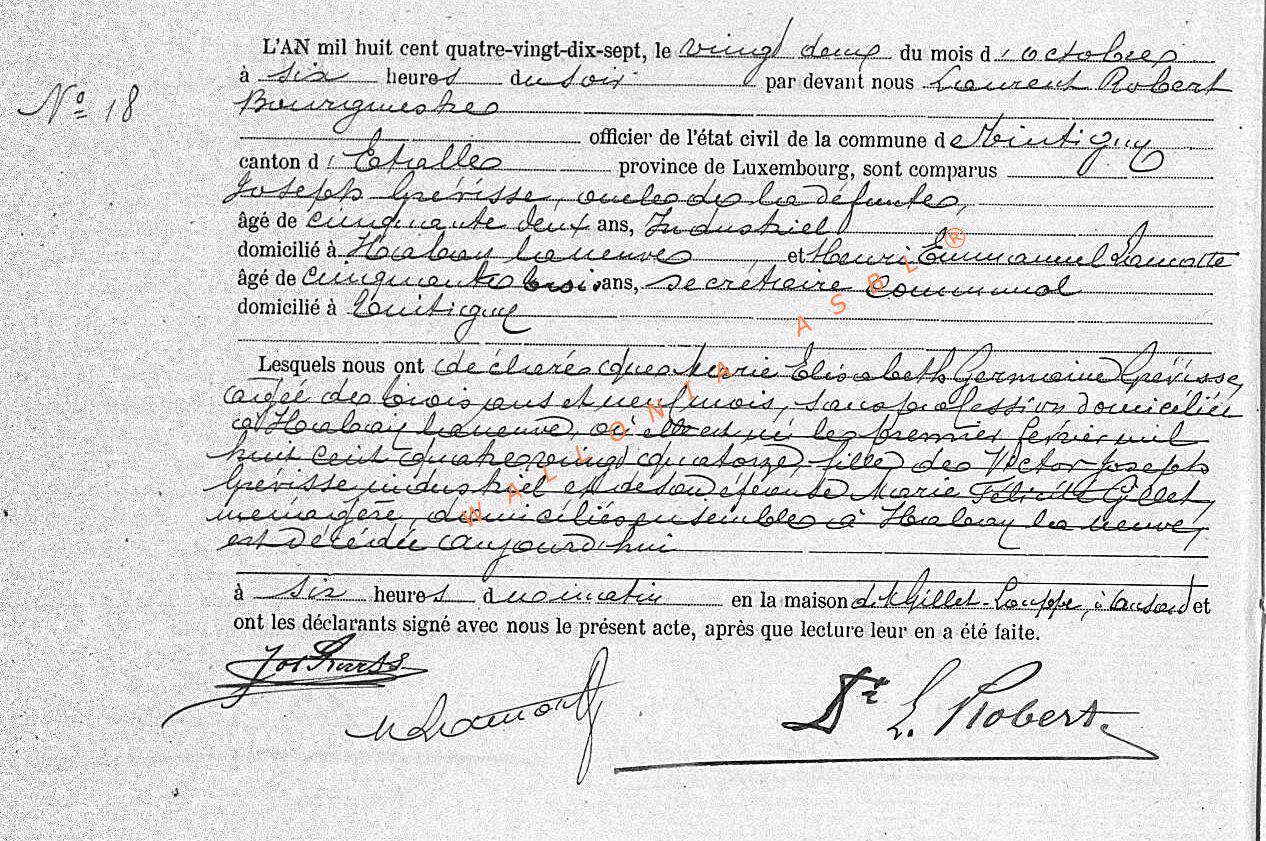 L'AN mil huit cent quatre-vingt-dix-sept, le vingt deux du mois d'octobre
à six heures du soir par devant nous Laurent Robert
Nº 18
Bourgmestre
officier de l'état civil de la commune de Tintigny
canton d'Etalle province de Luxembourg, sont comparus
Joseph Grévisse, oncle de la défunte,
âgé de cinquante deux ans, Industriel
domicilié à Habay la neuve et Henri Emmanuel Lamotte
âgé de cinquante trois ans, secrétaire communal
domicilié à Tintigny
Lesquels nous ont déclaré que Marie Elisabeth Germaine Grévisse,
agée de trois ans et neuf mois, sans profession domiciliée
à Habay la neuve, où elle est née le premier février mil
huit cent quatre vingt quatorze, fille de Victor Joseph
Grévisse industriel et de son épouse Marie Félicité Gillet,
ménagère, domiciliés ensemble à Habay la neuve,
est décédée aujourd'hui
à six heures du matin en la maison de Gillet-Louppe, à Ansart et
ont les déclarants signé avec nous le présent acte, après que lecture leur en a été faite.
H Lamotte
Dr L. Robert.
WALLONIA ASBL ®